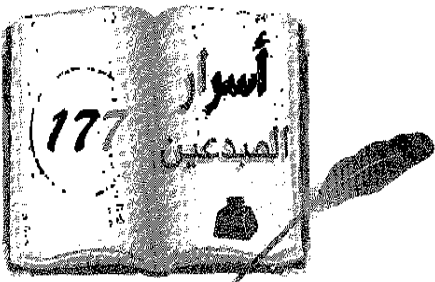 177
أسرار
المبدعين